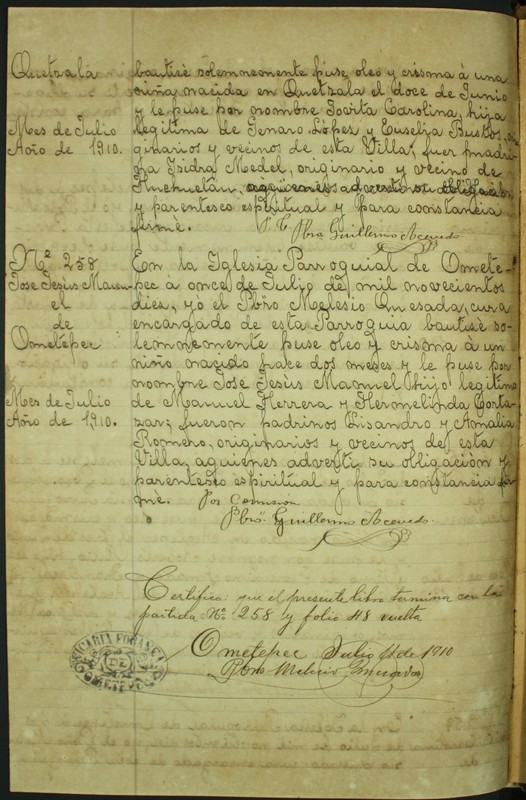 Quetzala
Mes de Julio
Año de 1910.
bautisè solemnemente puse oleo y crisma à una
niña nacida en Quetzala el doce de Junio
y le puse por nombre Jovita Carolina, hija
legitima de Genaro López y Euselia Bustos, ori
ginarios y vecinos de esta Villa, fuer madri
na Isidra Medel, originario y vecino de
aquienes advertì su obligaciòn
y parentesco espiritual y para constancia
firmè. P. C. Pbro Guillermo Acevedo
Nº 258
Jose Jesùs Manu
el
de
Ometepec
Mes de Julio
Año de 1910.
En la Iglesia Parroquial de Omete-
pec a once de Julio de mil novecientos
dies, yò el Pbro Melesio Quesada, cura
encargado de esta Parroquia bautisè so-
lemnemente puse oleo y crisma à un
niño nacido hace dos meses y le puse por
nombre Josè Jesùs Manuel hijo legitimo
de Manuel Herrera y Hermelinda Corta-
zar, fueron padrinos Lisandro y Amalia
Romero, originarios y vecinos de esta
Villa, aquienes adverti su obligaciòn y
parentesco espiritual y para constancia fir
mè. Por comision
Pbro. Guillermo Acevedo.
Certifico: que el presente libro termina con la
partida Nº 258 y folio 48 vuelta
Ometepec Julio 11 de 1910
Pbro Melecio Quesada
VICARIA FORANEA
DE
OMETEPEC